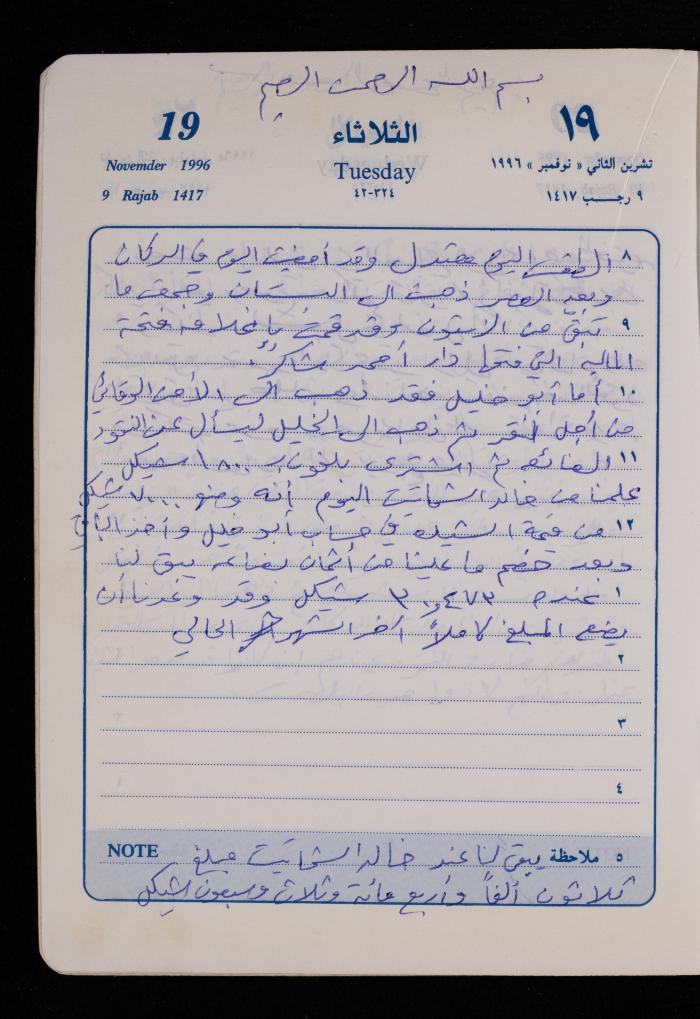 بسم الله الرحمن الرحيم
19 الثلاثاء ١٩
Novemder 1996 Tuesday تشرين الثاني « نوفمبر » ١٩٩٦
9 Rajab 1417 ٤٢-٣٢٤ ٩ رجب ١٤١٧
٨ الطقس اليوم معتدل وقد أمضيت اليوم في الدكان
وبعد العصر ذهبت الى البستان وجمعت ما
٩ تبقى من الزيتون وقد قمت بإغلاق فتحة
المالية التي فتحها دار أحمد شاكر.
١٠ أما أبو خليل فقد ذهب الى الأمن الوقائي
من أجل ثم ذهب الى الخليل ليسأل عن النقود
١١ الضائعة ثم اشترى بلفون بـ ١٨٠٠ شيكل
علمنا من خالد الشماتيت اليوم أنه وضع ٧٠٠٠ شيكل
١٢ من قيمة الشيك في حساب أبو خليل وأخذ الباقي
وبعد خصم ما علينا من أثمان بضاعة يبقى لنا
١ عنده ٣٠,٤٧٣ شيكل وقد وعدنا أن
يضع المبلغ كاملاً آخر الشهر الحالي
٢
٣
٤
NOTE ٥ ملاحظة يبقى لنا عند خالد الشماتيت مبلغ
ثلاثون ألفاً وأربع مائة وثلاث وسبعون شيكل